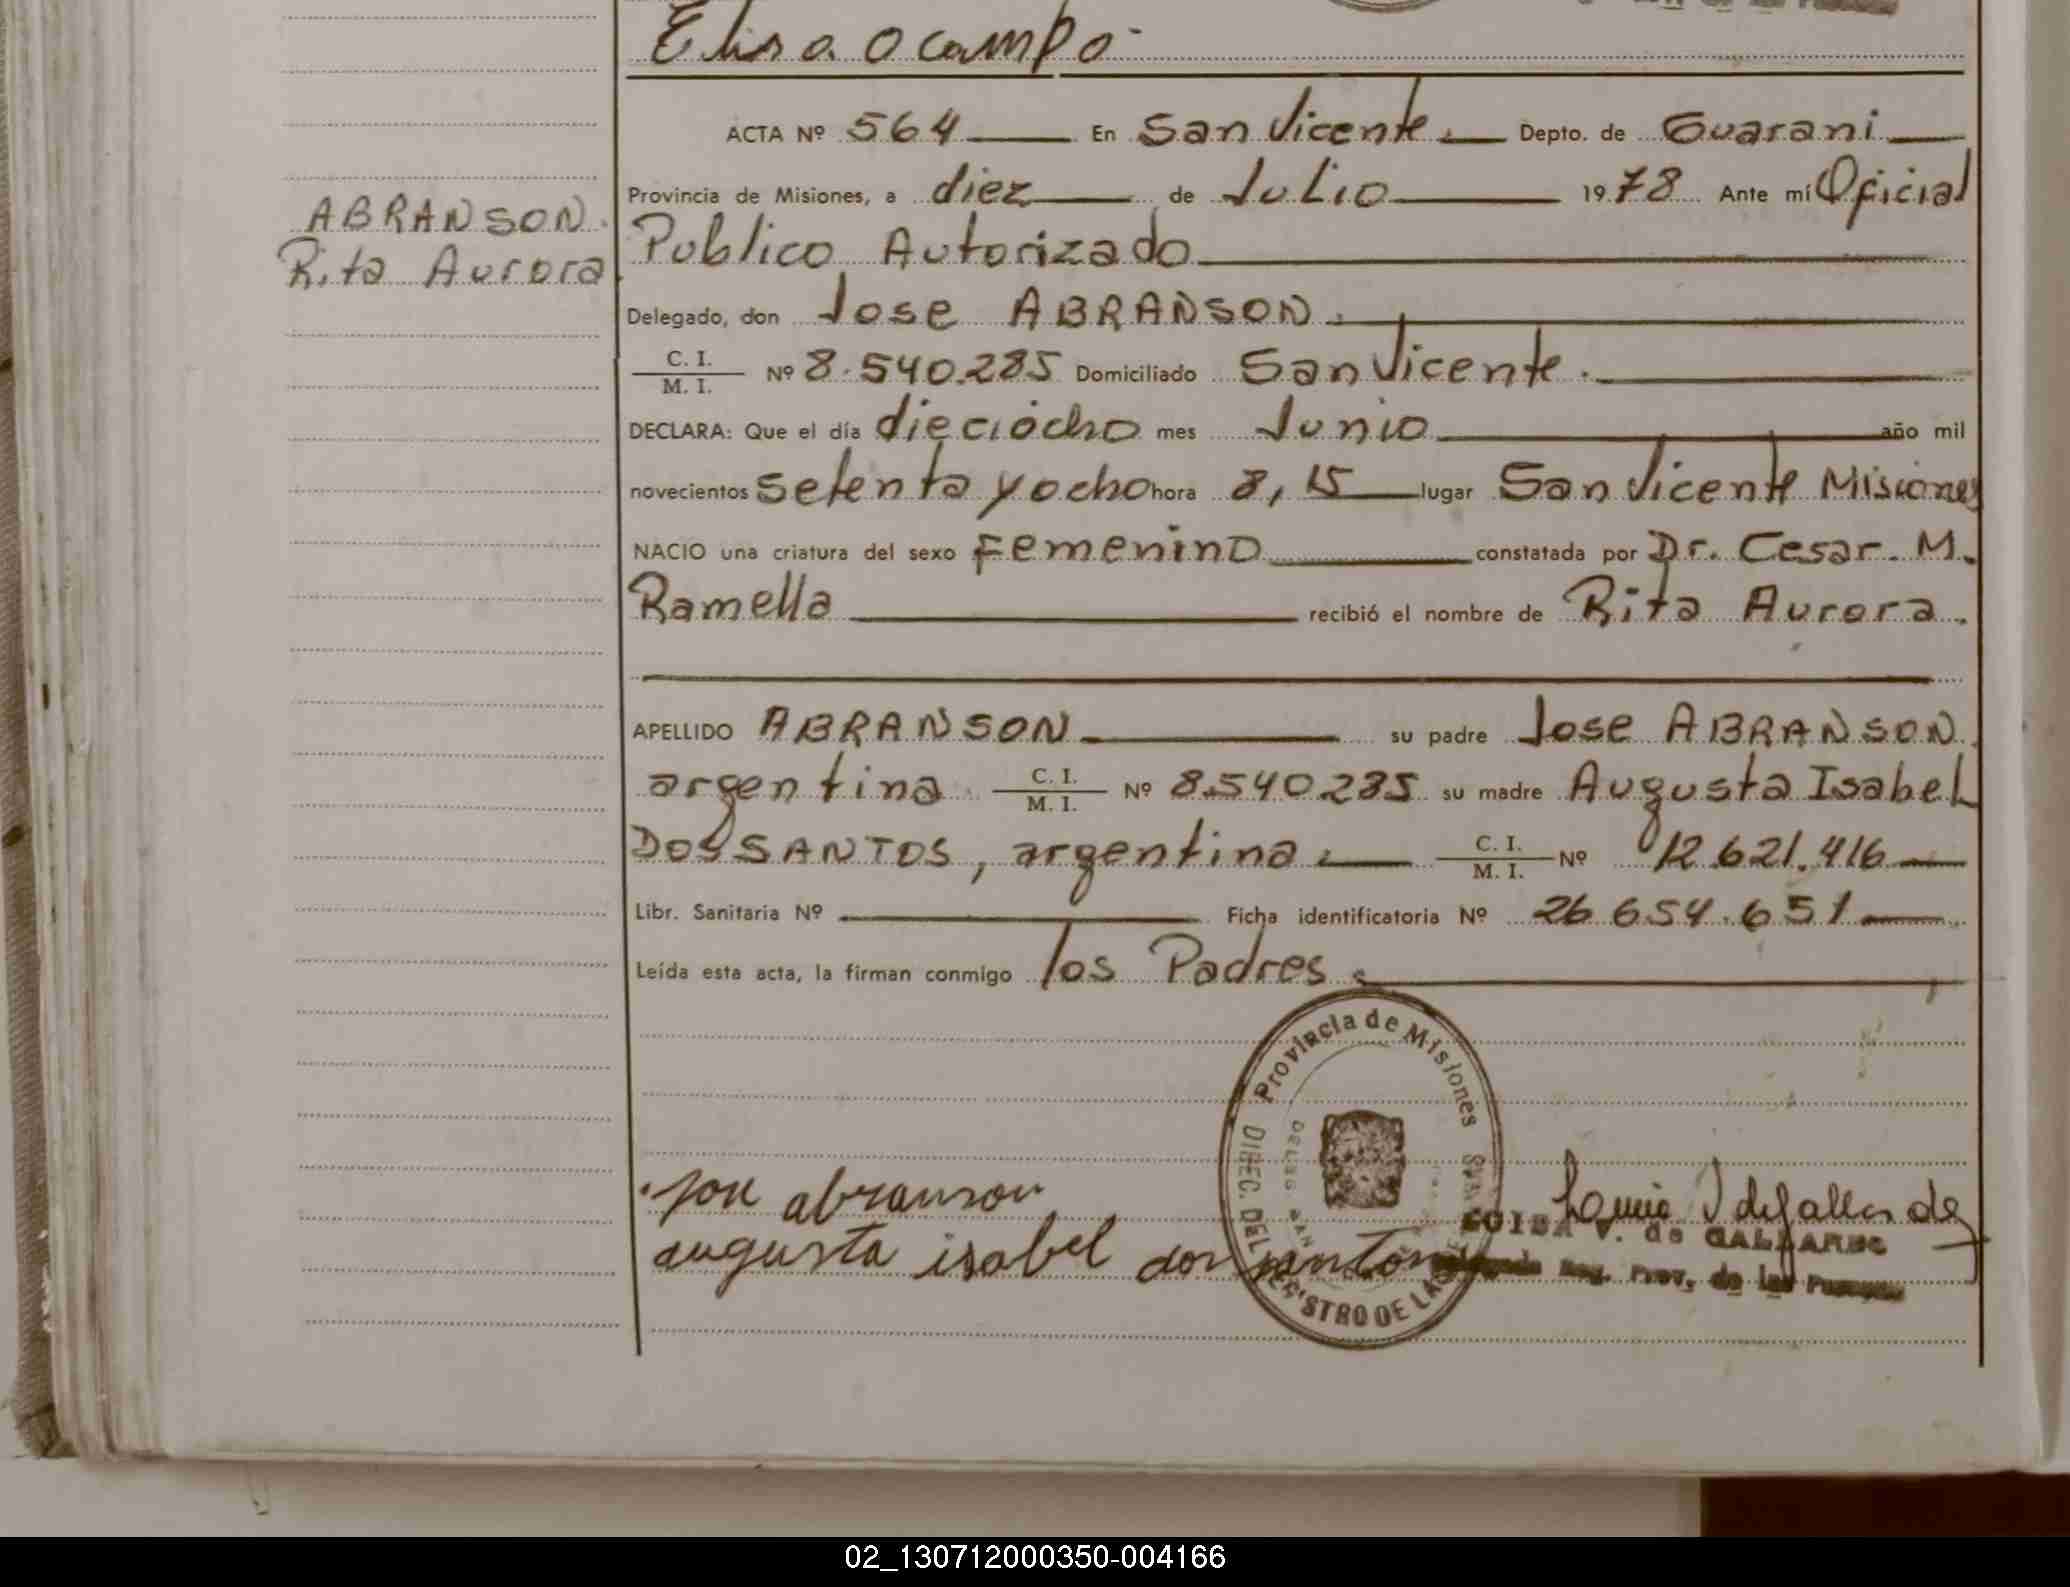 Elisa Ocampo
ACTA Nº 564 En San Vicente. Depto. de Guarani
Provincia de Misiones, a diez de Julio 1978 Ante mí Oficial
ABRANSON.
Publico Autorizado
Rita Aurora
Delegado, don Jose ABRANSON.
C. I.
M. I. Nº 8.540.285 Domiciliado San Vicente.
DECLARA: Que el día dieciocho mes Junio año mil
novecientos setenta y ocho hora 8,15 lugar San Vicente Misiones
NACIO una criatura del sexo Femenino constatada por Dr. Cesar. M.
Ramella recibió el nombre de Rita Aurora.
APELLIDO ABRANSON su padre Jose ABRANSON.
argentina C. I.
M. I. Nº 8.540.285 su madre Augusta Isabel
DOS SANTOS, argentina. C. I.
M. I. Nº 12.621.416
Libr. Sanitaria Nº Ficha identificatoria Nº 26 654.651
Leída esta acta, la firman conmigo los Padres.
Provincia de Misiones
DIREC. DEL REGISTRO DE LAS
jose abranson
augusta isabel dos santos
V. de GALEANO
Reg. Prov. de las Personas
02_130712000350-004166